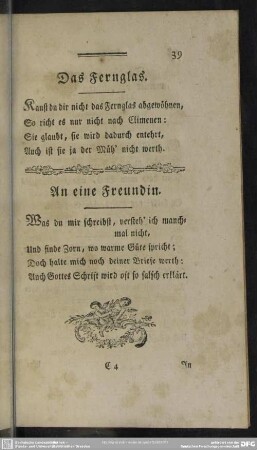 39
Das Fernglas.
Kanst du dir nicht das Fernglas abgewöhnen,
So richt es nur nicht nach Climenen:
Sie glaubt, sie wird dadurch entehrt,
Auch ist sie ja der Müh' nicht werth.
An eine Freundin.
Was du mir schreibst, versteh' ich manch-
mal nicht,
Und finde Zorn, wo warme Güte spricht;
Doch halte mich noch deiner Briefe werth:
Auch Gottes Schrift wird oft so falsch erklärt.
C 4
In
DFG